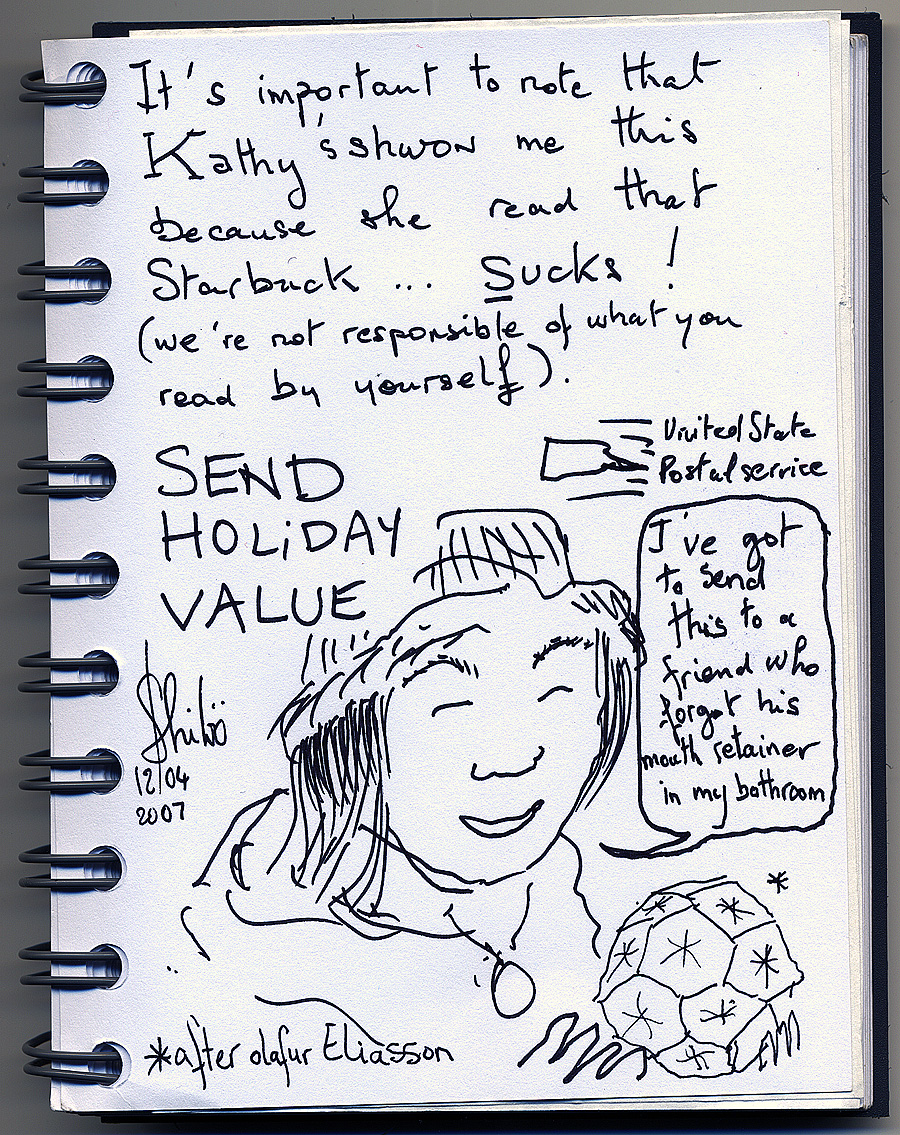 It's important to note that
Kathy's shwon me this
because she read that
Starbuck ... Sucks !
(we're not responsible of what you
read by yourself).
United State
Postal service
SEND
HOLiDAY
VALUE
I've got
to send
this to a
friend who
forgot his
mouth retainer
in my bathroom
12/04
2007
*
*after olafur Eliasson